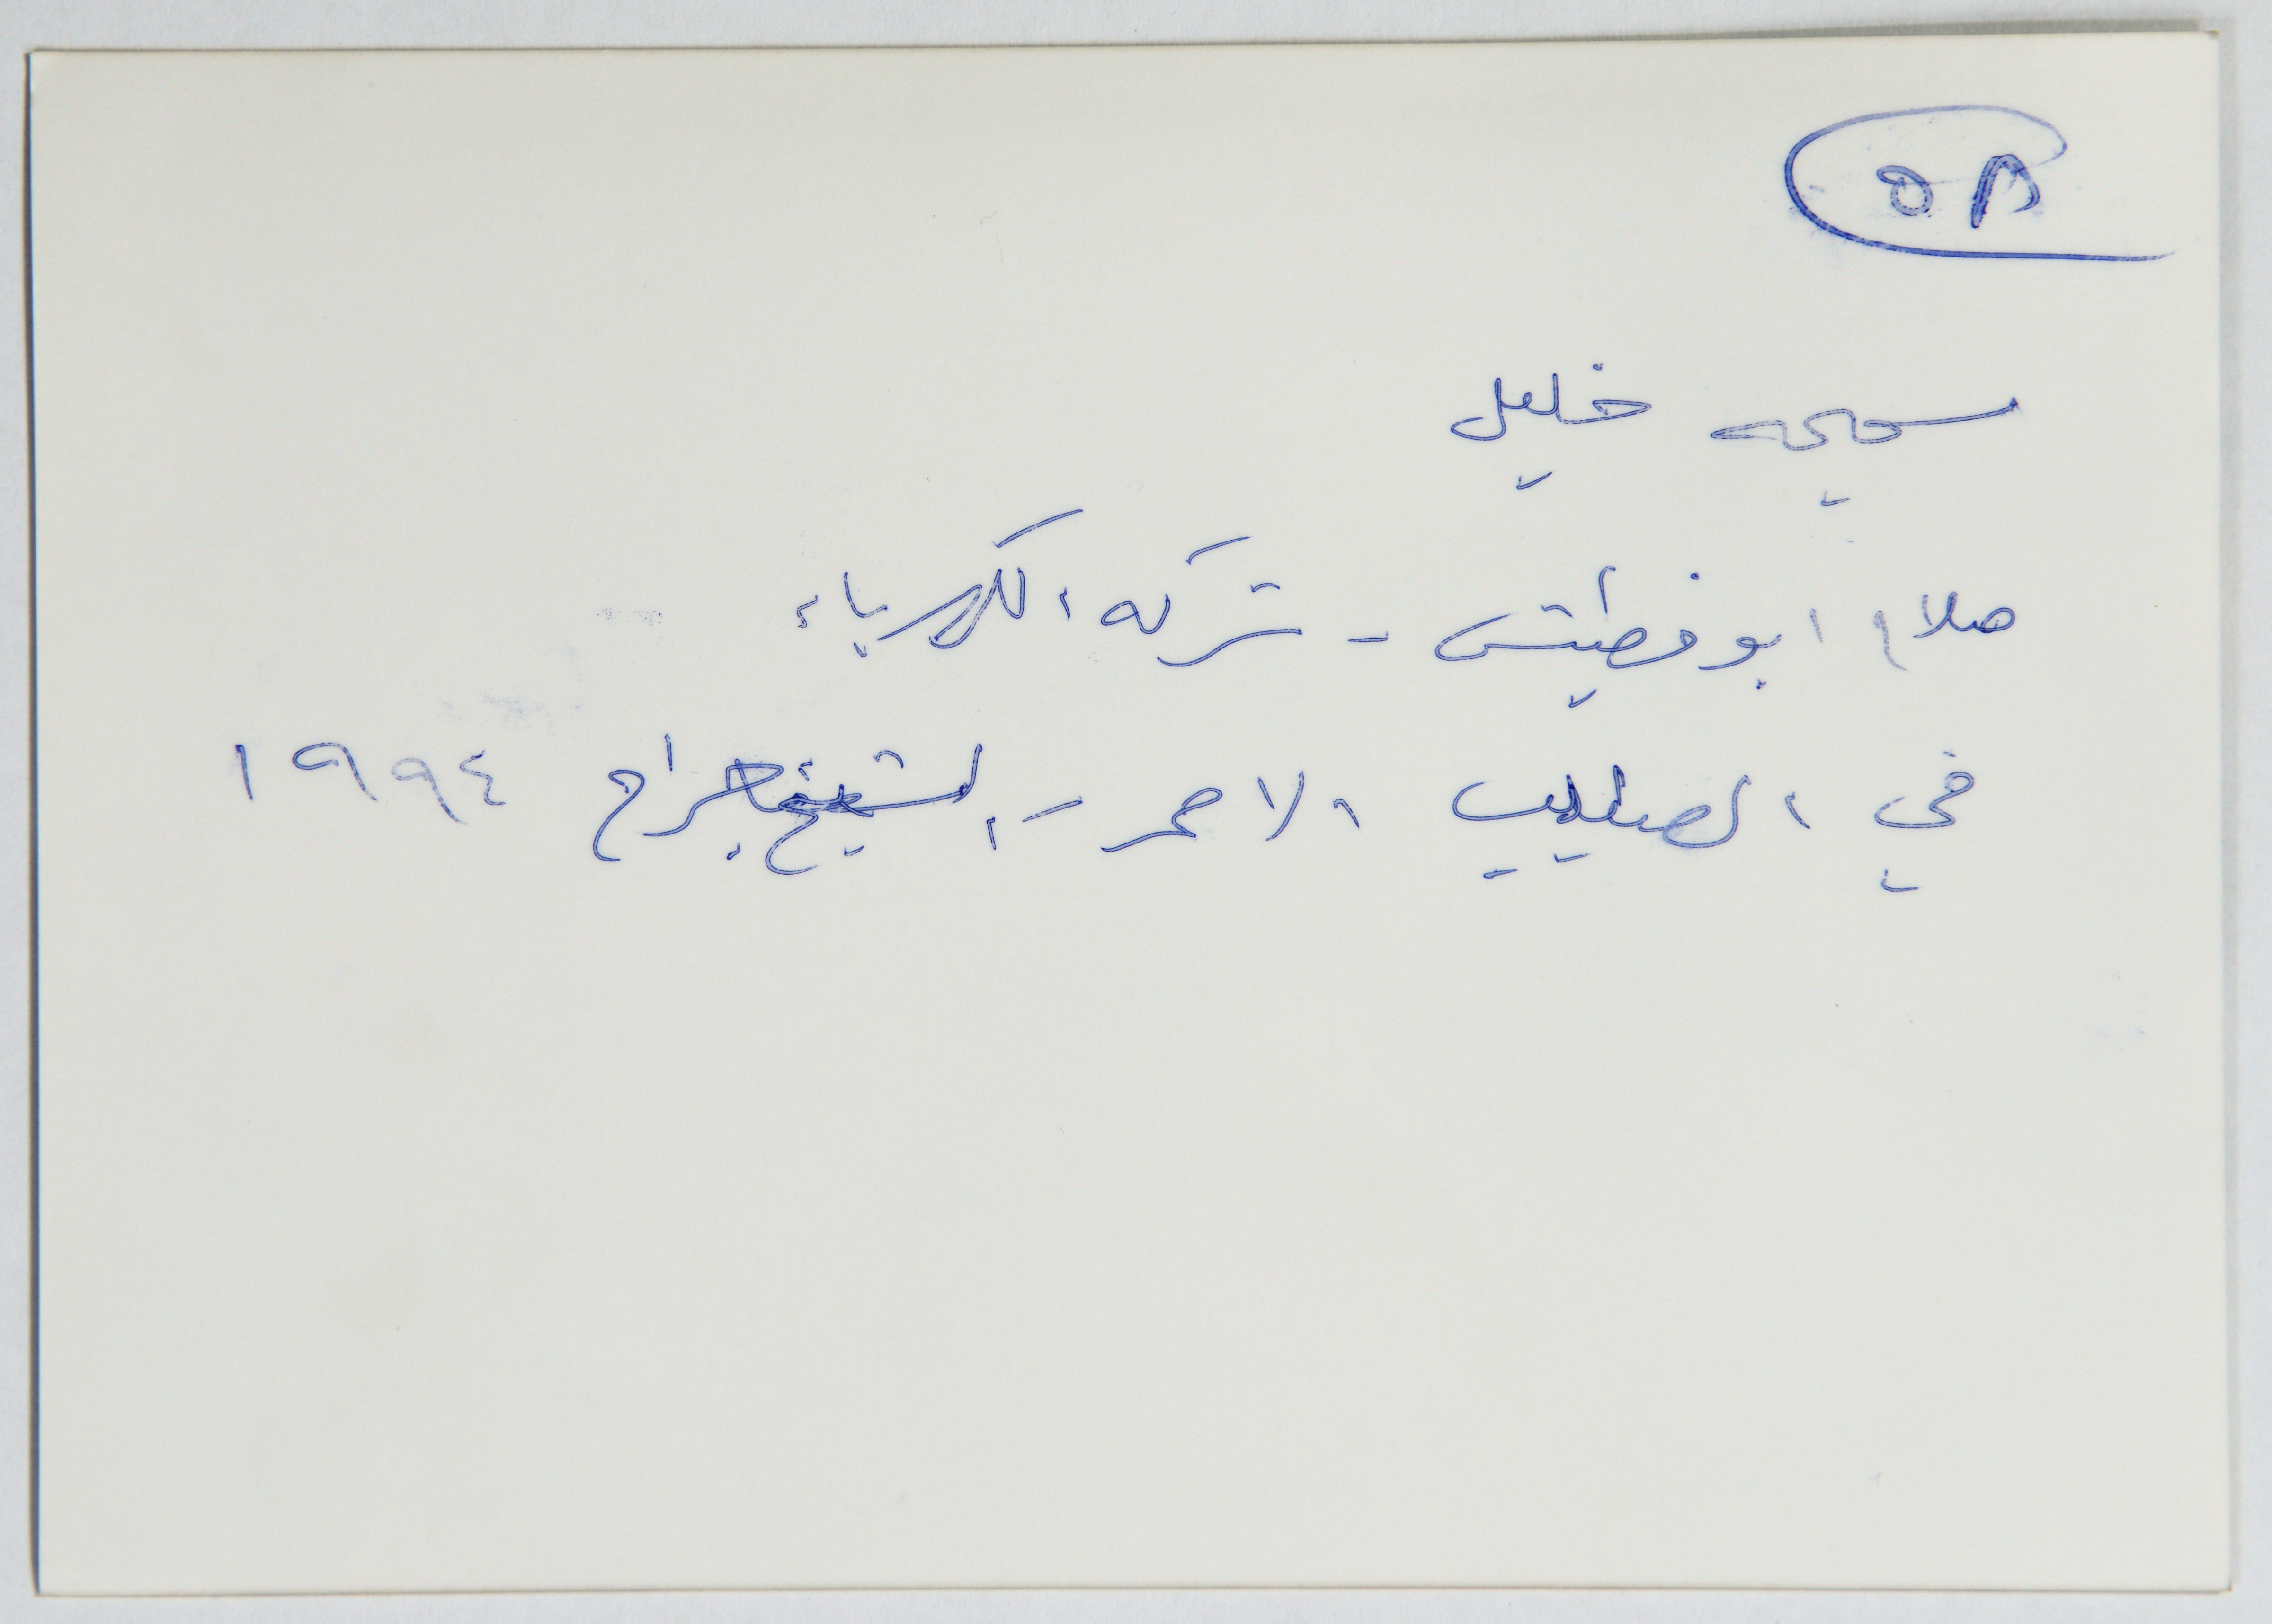 ٥٨
سميحه خليل
صلاح ابو قطيش - شركه الكهرباء
في الصليب الاحمر - الشيخ جراح ١٩٩٤